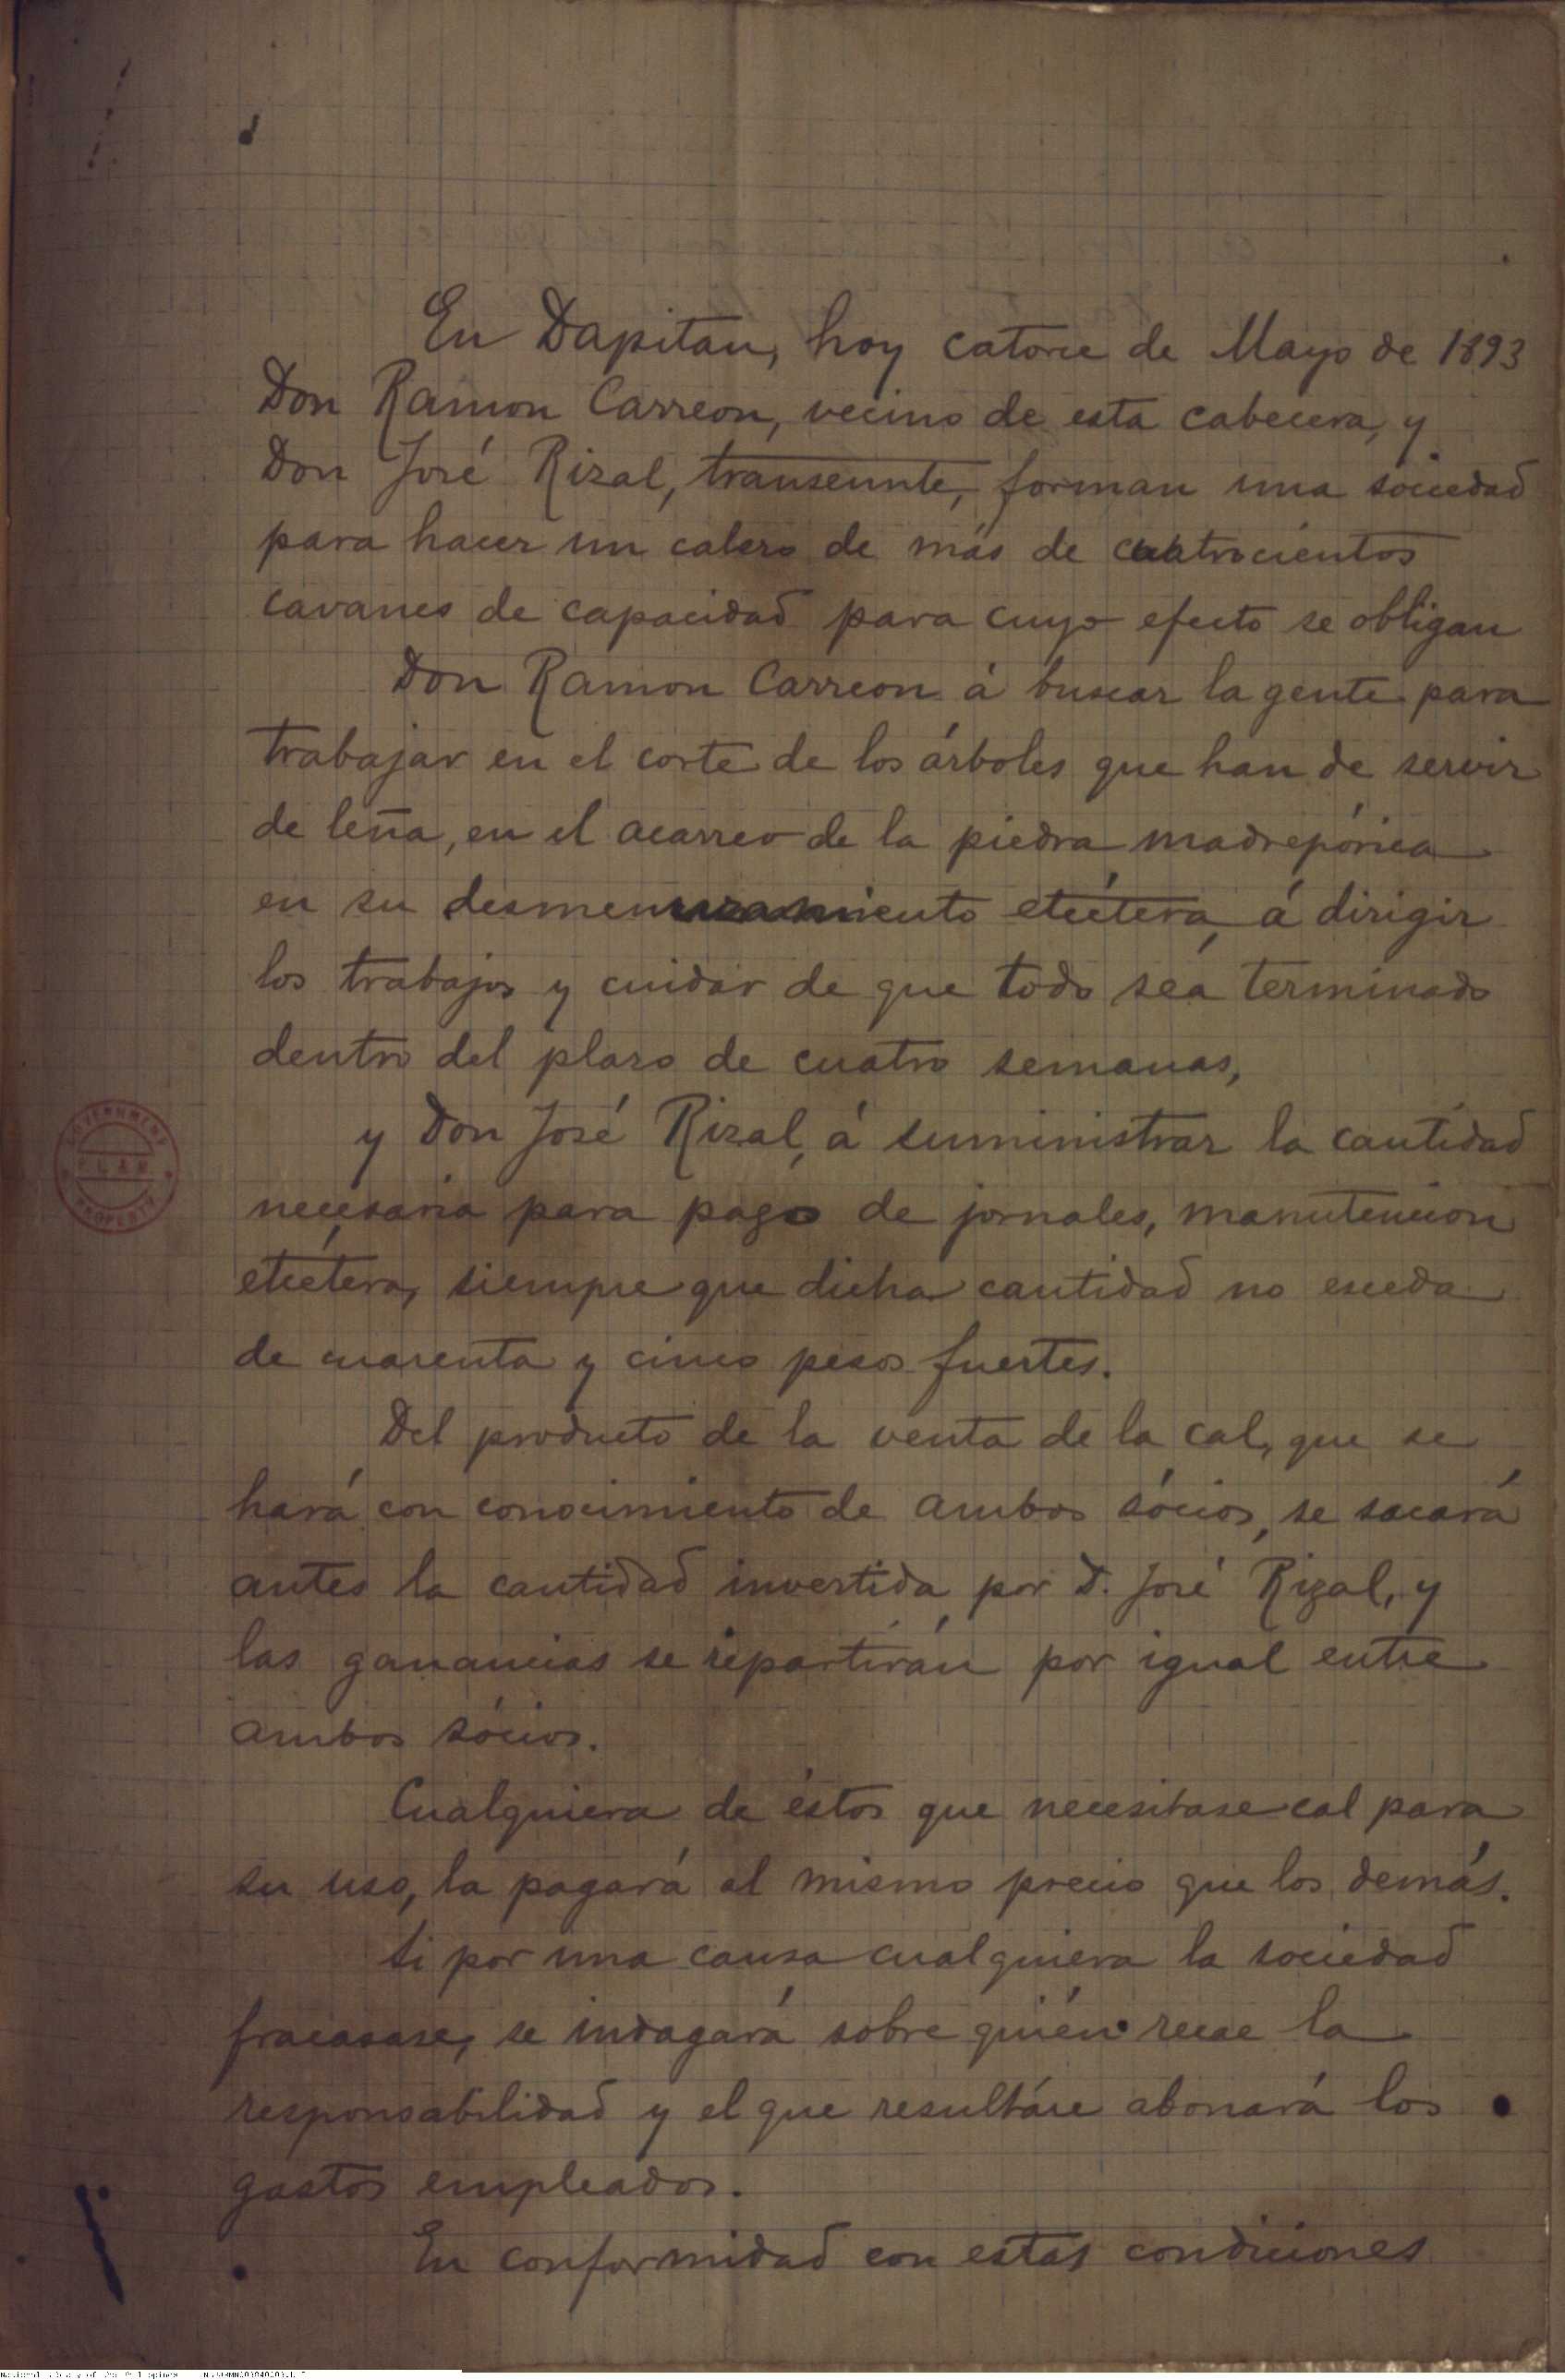 En Dapitan, hoy catorce de Mayo de 1893
Don Ramon Carreon, vecino de esta cabecera, y
Don José Rizal, transeunte, forman una sociedad
para hacer un calero de más de cuatrocientos
cavanes de capacidad para cuyo efecto se obligan
Don Ramon Carreon á buscar la gente para
trabajar en el corte de los árboles que han de servir
de leña, en el acarreo de la piedra madrepórica
en su desmenuzamiento etcétera, á dirigir
los trabajos y cuidar de que todo sea terminado
dentro del plazo de cuatro semanas,
y Don José Rizal, á suministrar la cantidad
necesaria para pago de jornales, manutencion
etcétera, siempre que dicha cantidad no esceda
de cuarenta y cinco pesos fuertes.
Del producto de la venta de la cal, que se
hará con conocimiento de ambos sócios, se sacará
antes la cantidad invertida por D. José Rizal, y
las ganancias se repartirán por igual entre
ambos sócios.
Cualquiera de éstos que necesitase cal para
su uso, la pagará al mismo precio que los demás.
Si por una causa cualquiera la sociedad
fracasase, se indagará sobre quién recae la
responsabilidad y el que resultáre abonará los
gastos empleados.
En conformidad con estas condiciones
GOVERNMENT
PROPERTY
National Library of the Philippines